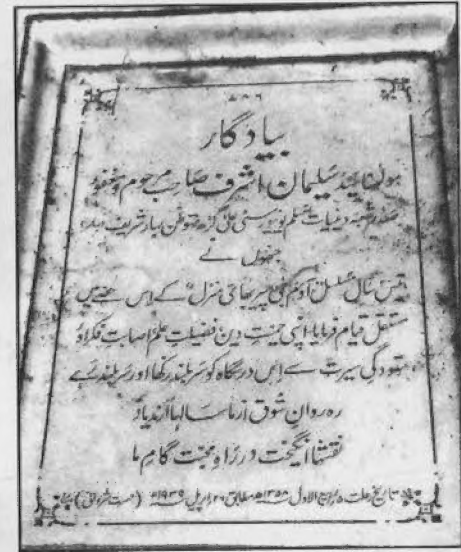 ۷۸۶
بیادگار
مولٰنا سید سلیمان اشرف صاحب مرحوم و مغفور
صدر شعبہ دینیات مسلم یونیورسٹی علی گڑھ متوطن بہار شریف بہار
جنہوں نے
تیس سال مسلسل آدم جی پیربھائی منزل کے اس حصہ میں
مستقل قیام فرمایا اپنی حمیتِ دین فضیلتِ علم اصابتِ فکر اور
ستودگی سیرت سے اس درسگاہ کو سربلند رکھا اور سربلند رہے
رہ روانِ شوق از ما سالہا آرند یاد
نقشہا انگیخت در راہِ محبت گامِ ما
تاریخ رحلت ۵ ربیع الاول ۱۳۵۸ھ مطابق ۲۶ اپریل ۱۹۳۹ء